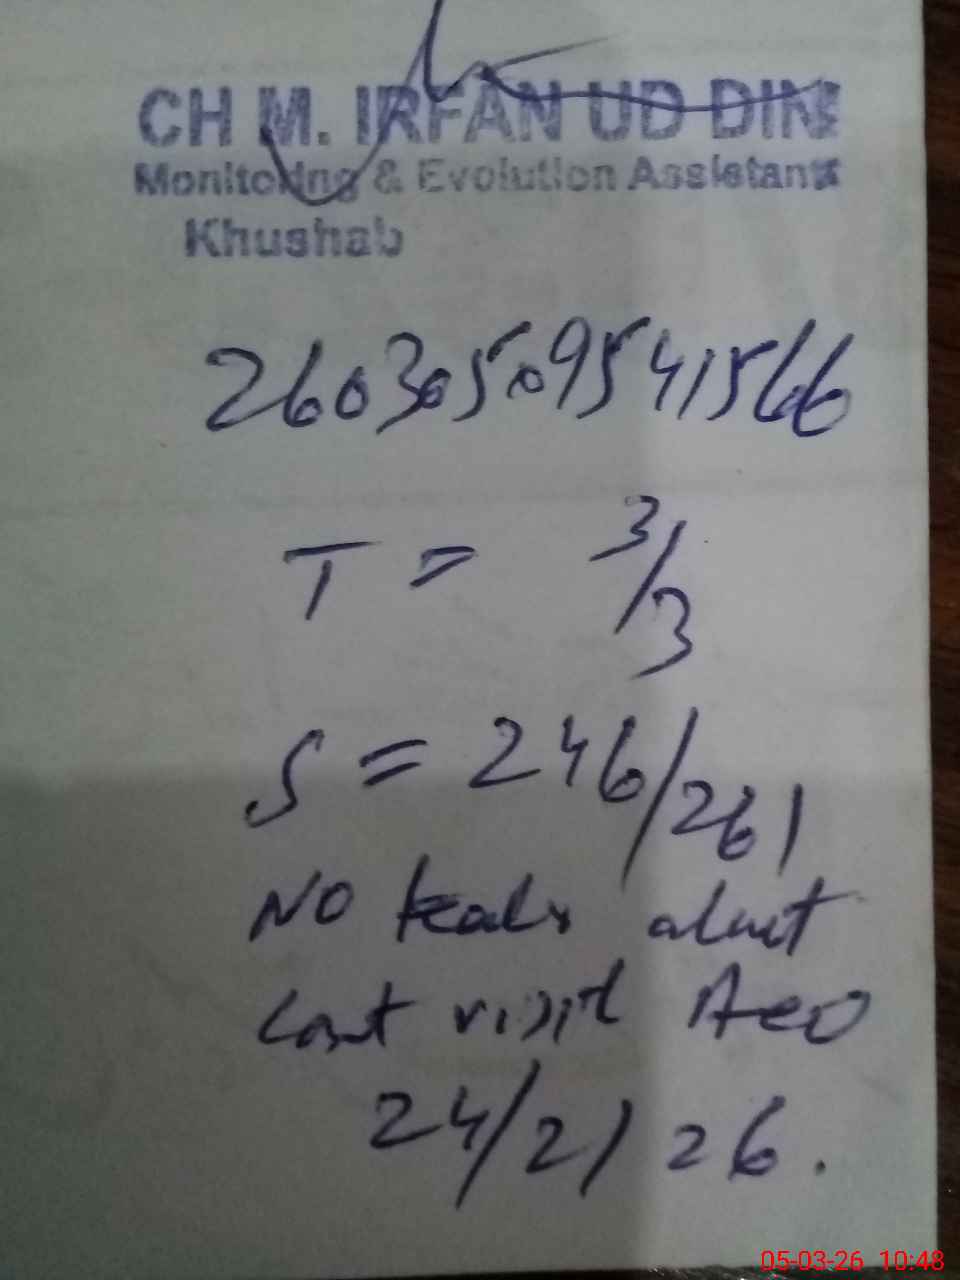 CH M. IRFAN UD DIN
Monitoring & Evolution Assistant
Khushab
26030509541566
T = 3/3
S = 246/261
NO
Last visit AEO
24/2/26.
05-03-26 10:48